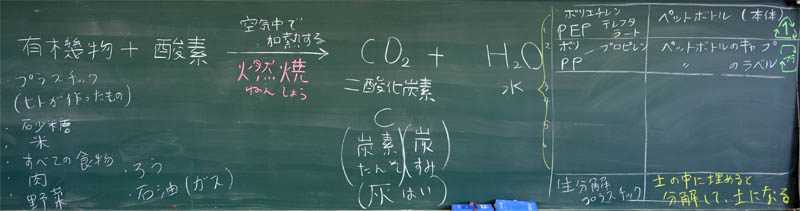 空気中で
加熱する
有機物 + 酸素 → CO₂ + H₂O
燃焼
ねんしょう
二酸化炭素
水
・プラスチック
(ヒトが作ったもの)
・砂糖
・米
・すべての食物
・肉
・野菜
・ろう
・石油(ガス)
C
(炭素 たんそ)(炭 すみ)
(灰 はい)
1
2
3
4
5
6
ポリエチレン
テレフタラート
PEP
ペットボトル(本体)
ポリプロピレン
PP
ペットボトルのキャップ
〃 のラベル
生分解
プラスチック
土の中に埋めると
分解して、土になる